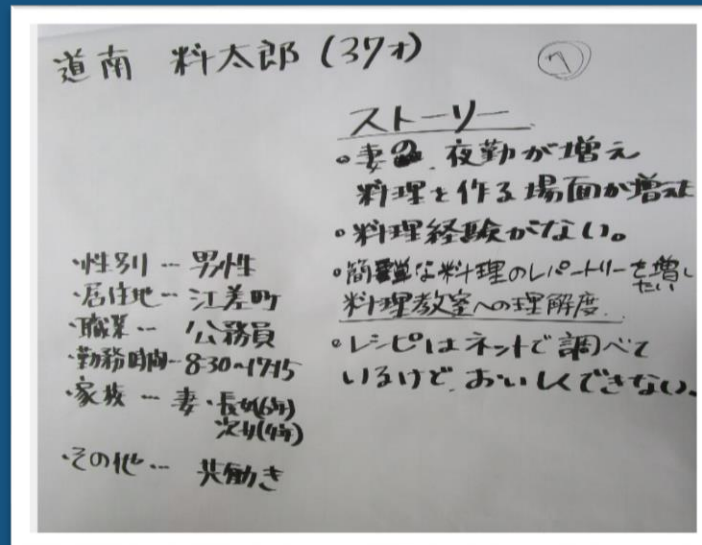 道南 料太郎 (37才)
7
ストーリー
・妻の夜勤が増え
料理を作る場面が増えた
・料理経験がない。
・簡単な料理のレパートリーを増したい
料理教室への理解度
・レシピはネットで調べて
いるけど、おいしくできない。
・性別…男性
・居住地…江差町
・職業…公務員
・勤務時間…8:30~17:15
・家族…妻・長女(6年)
次女(4年)
・その他…共働き